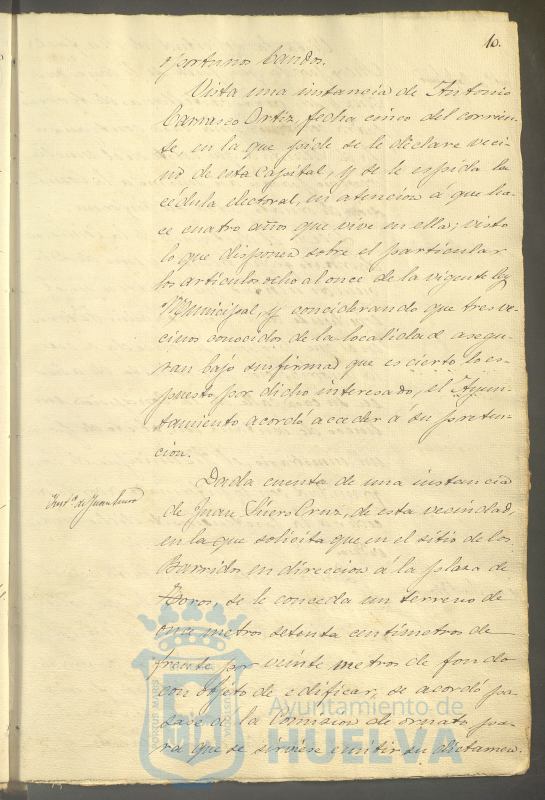 10.
oportunos bandos.
Vista una instancia de Antonio
Carrasco Ortiz, fecha cinco del corrien-
te, en la que pide se le declare veci-
no de esta Capital, y se le espida la
cédula electoral, en atencion á que ha-
ce cuatro años que vive en ella; visto
lo que disponen sobre el particular
los articulos ocho al once de la vigente ley
Municipal, y considerando que tres ve-
cinos conocidos de la localidad asegu-
ran bajo su firma que es cierto lo es-
puesto por dicho interesado, el Ayun-
tamiento acordó acceder á su preten-
cion.
Inst.ª de Juan Suero
Dada cuenta de una instancia
de Juan Suero Cruz, de esta vecindad,
en la que solicita que en el sitio de los
Barridos en direccion á la plaza de
Toros, se le conceda un terreno de
once metros setenta centímetros de
frente por veinte metros de fondo
con objeto de edificar, se acordó pa-
sase á la Comision de ornato pa-
ra que se sirviese emitir su dictamen.
Ayuntamiento de
HUELVA